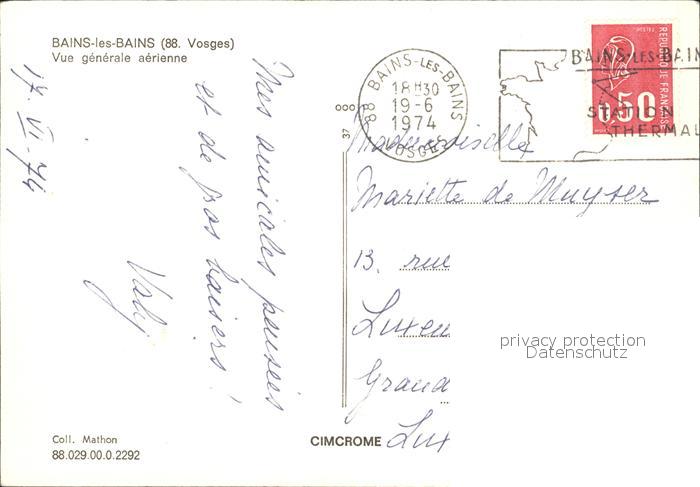 BAINS-les-BAINS (88. Vosges)
Vue générale aérienne
17. VI. 74
Mes amicales pensées
et de gros baisers !
Valy
88 BAINS-LES-BAINS
18H30
19-6
1974
VOSGES
BAINS-LES-BAIN
STATION
THERMAL
POSTES
REPUBLIQUE FRANÇAISE
1,50
000
37
Mademoiselle
Mariette de Muyser
13. rue
Luxem
Grand
Lux
privacy protection
Datenschutz
Coll. Mathon
88.029.00.0.2292
CIMCROME